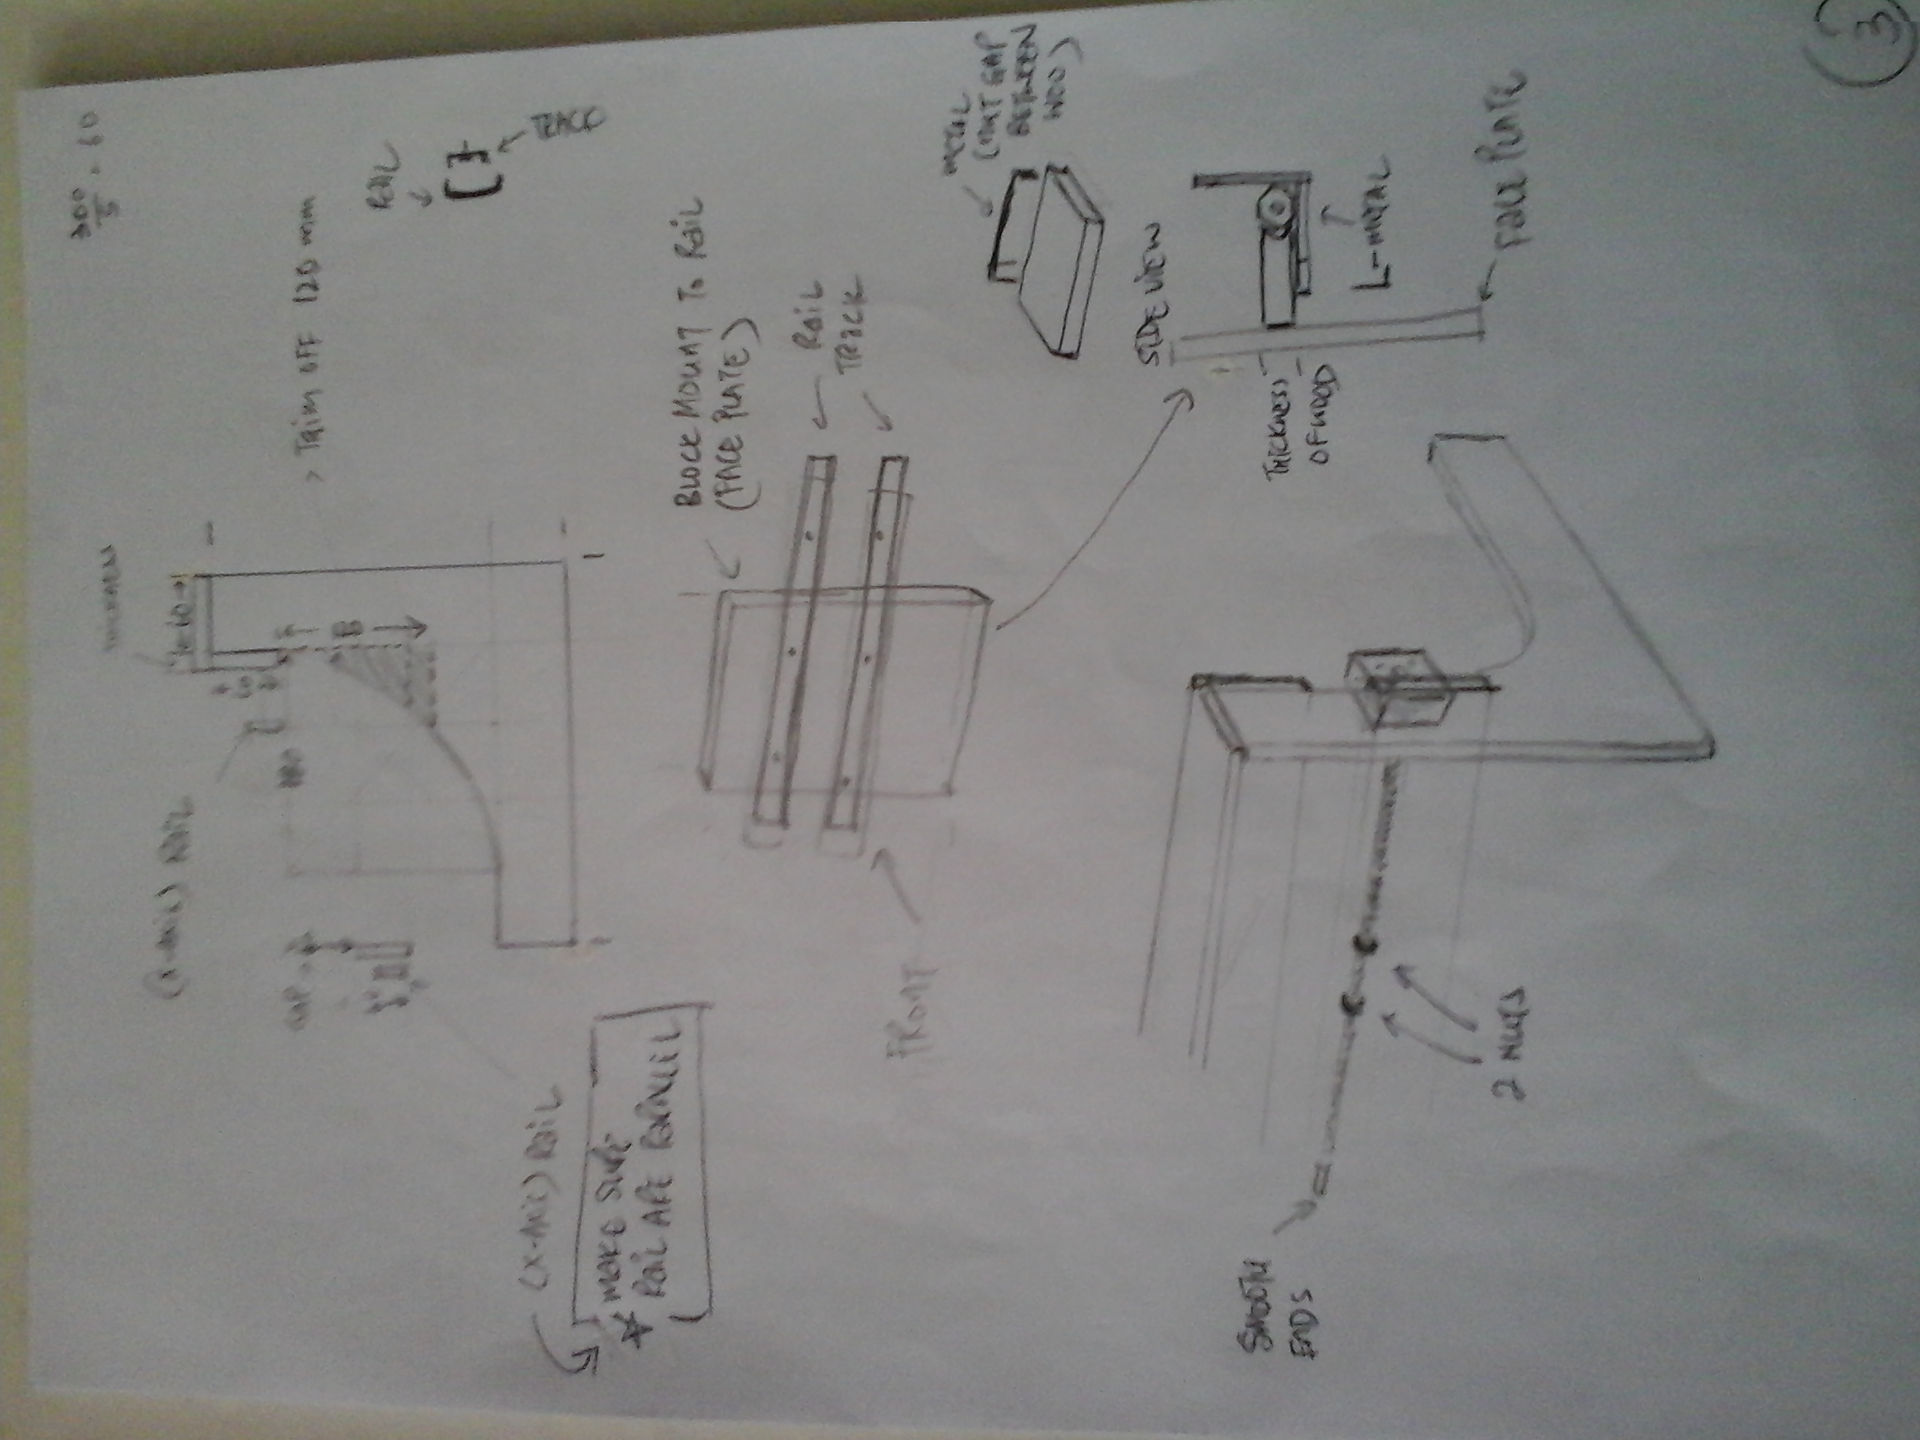 3
300/5 = 60
> TRIM OFF 120 mm
RAIL
(X-AXIS) RAIL
GAP
B
(X-AXIS) RAIL
* MAKE SURE
RAIL ARE PARALLEL
BLOCK MOUNT TO RAIL
(FACE PLATE)
RAIL
TRACK
FRONT
METAL
(MINT GAP
BETWEEN
WOO)
SIDE VIEW
THICKNESS
OF WOOD
L-METAL
FACE PLATE
SMOOTH
ENDS
2 NUTS